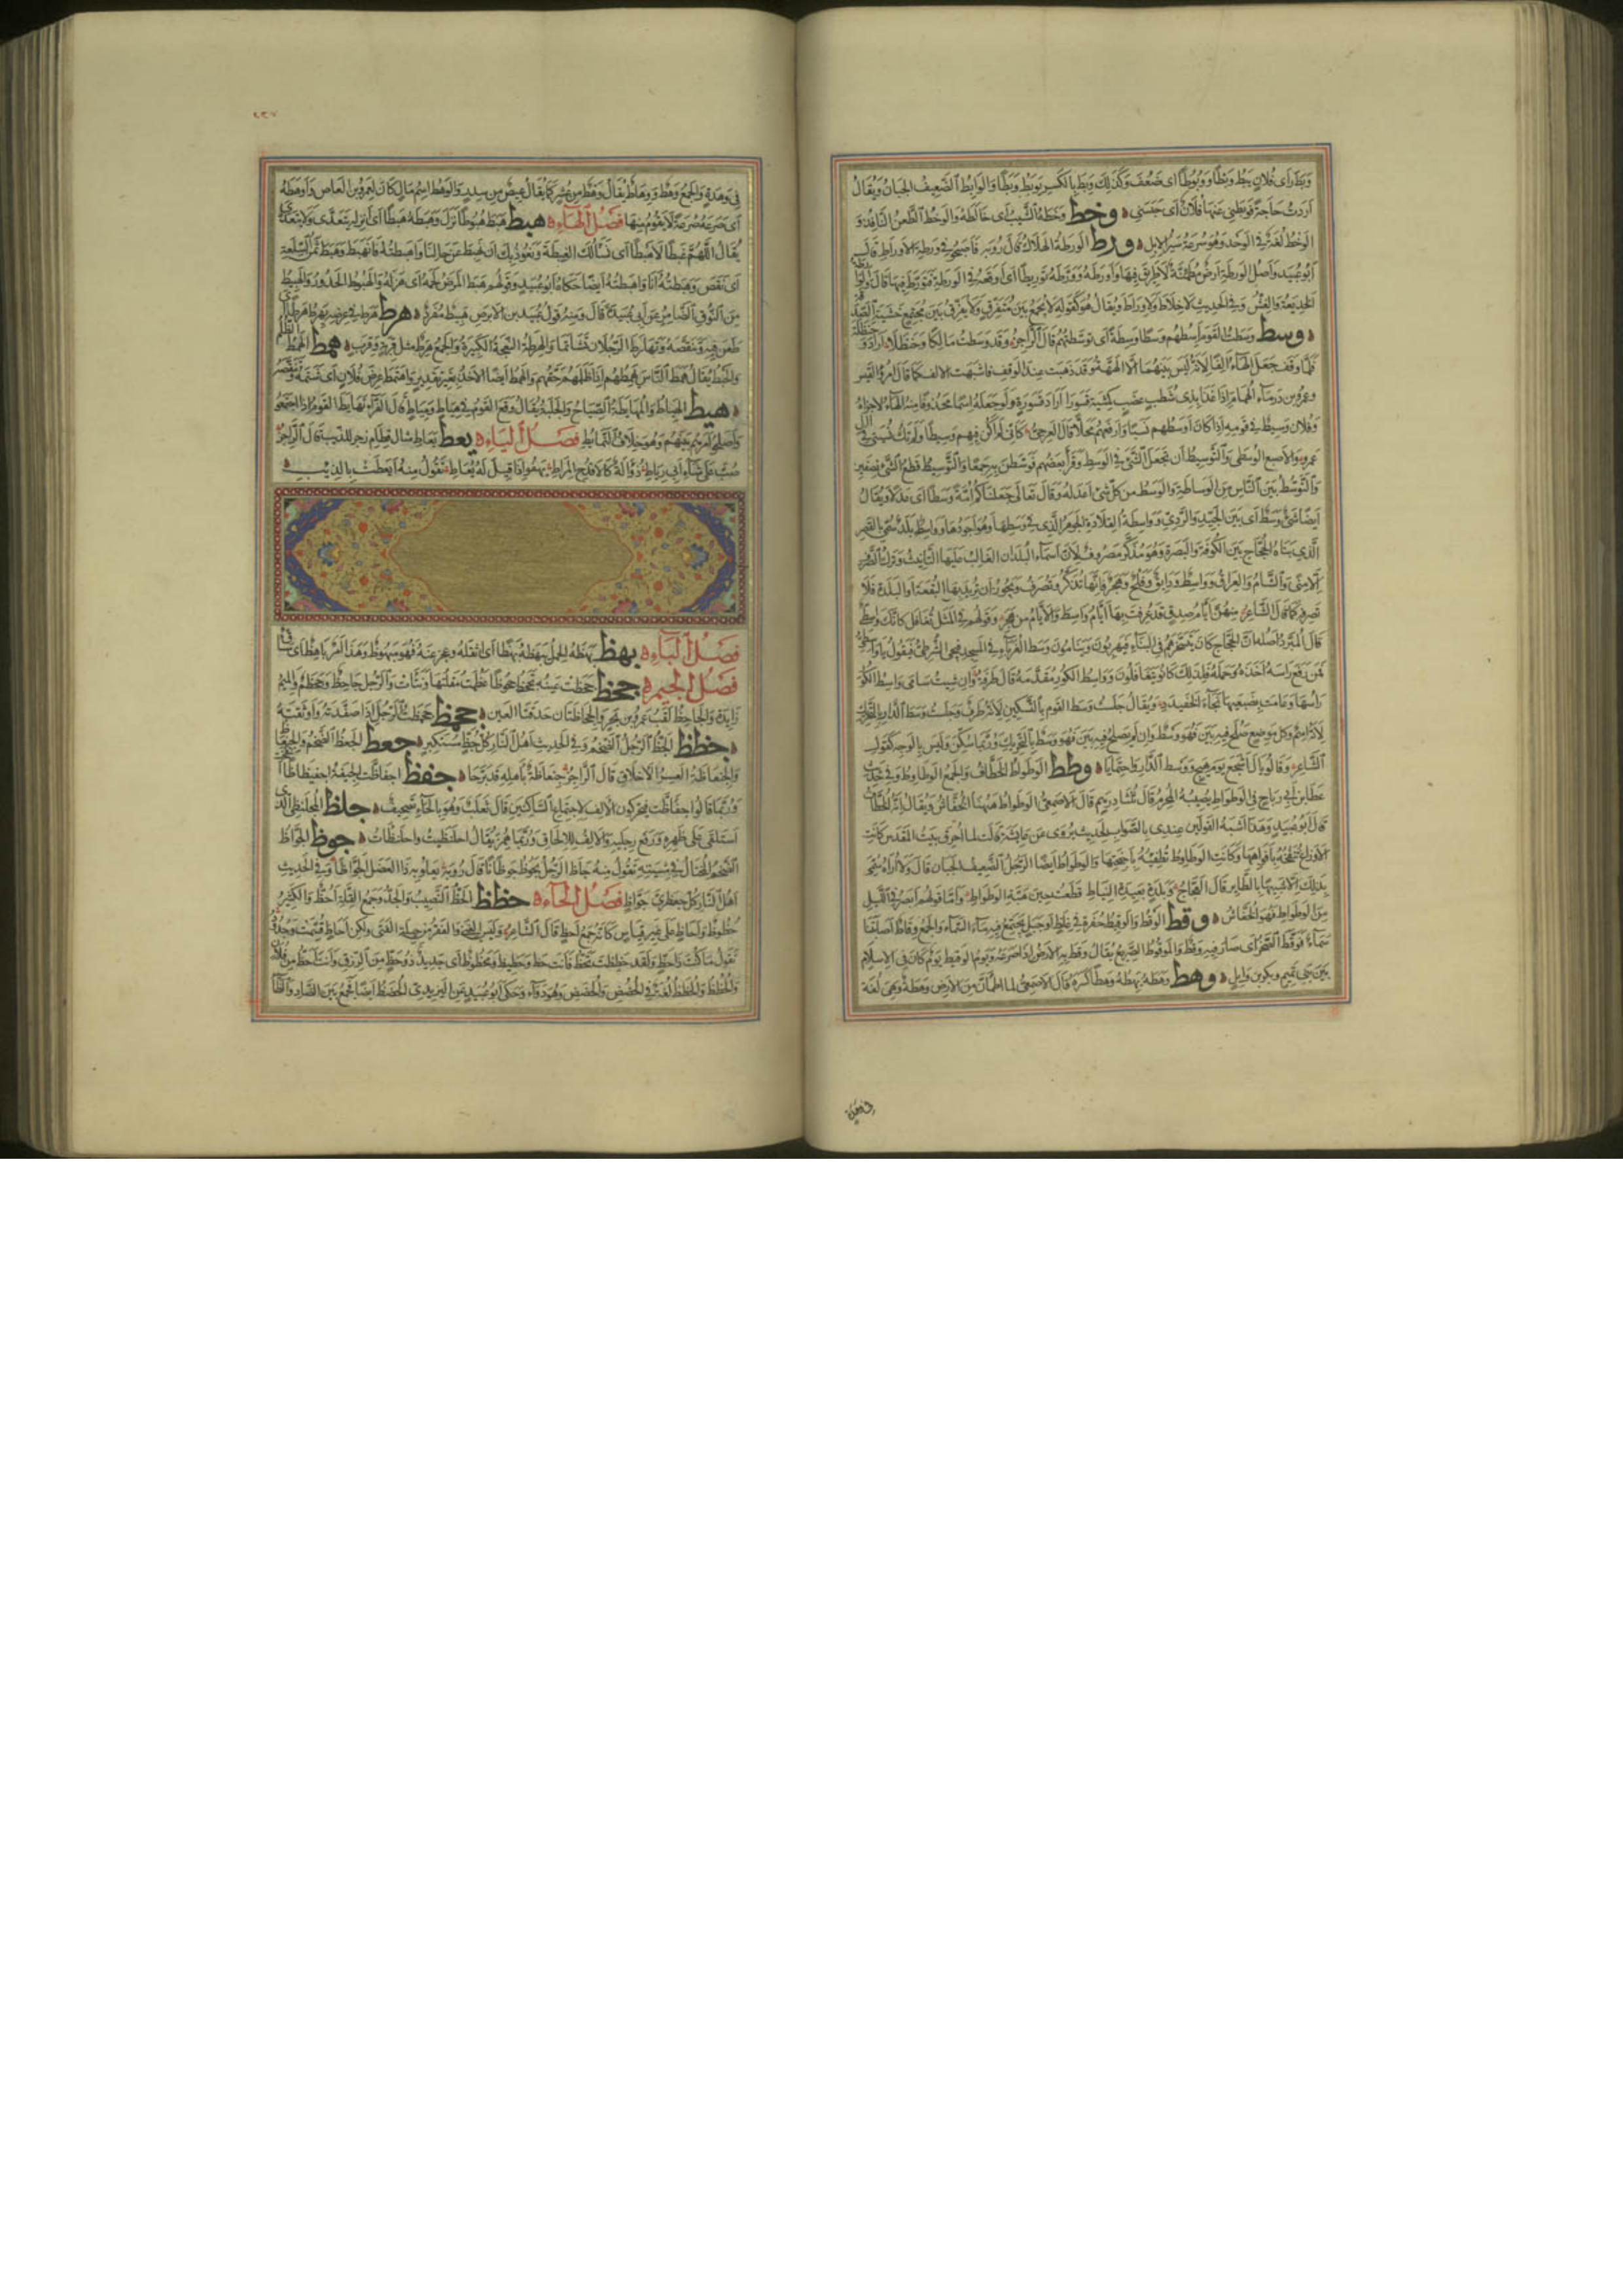 وبط رأى فلان يبط وبطا ووبوطا اى ضعف وكذلك وبط بالكسر يوبط وبطا والوابط الضعيف الجبان ويقال
اردت حاجة فوبطنى عنها فلان اى حبسنى وخط وخطه الشيب اى خالطه والوخط الطعن النافذ و
الوخط لغة فى الوخد وهو سرعة سير الابل ورط الورطة الهلاك قال رؤبة فاصبحوا فى ورطة الاوراط قال
ابو عبيد واصل الورطة ارض مطمئنة لا طريق فيها واورطه وورطه توريطا اى اوقعه فى الورطة فتورط فيها
الخديعة والغش وفى الحديث لا خلاط ولا وراط ويقال هو كقوله لا يجمع بين متفرق ولا يفرق بين مجتمع خشية الصدقة
وسط وسطت القوم اسطهم وسطا وسطة اى توسطتهم قال الراجز وقد وسطت مالكا وحنظلا اراد و
فلما وقف جعل الهاء الفا لانه ليس بينهما الا الهمة وقد ذهبت عند الوقف فاشبهت الالف كما قال امرؤ القيس
وعمرو بن درماء الهمام اذا غدا بذى شطب عضب كمشية قسورا اراد قسورة ولو جعله اسما محذوفا منه الهاء لاجراه
وفلان وسيط فى قومه اذا كان اوسطهم نسبا وارفعهم محلا قال العرجى كانى لم اكن فيهم وسيطا ولم تك نسبتى فى
عمرو والاصبع الوسطى والتوسيط ان تجعل الشئ فى الوسط وقرأ بعضهم فوسطن به جمعا والتوسيط قطع الشئ نصفين
والتوسط بين الناس من الوساطة والوسط من كل شئ اعدله وقال تعالى جعلناكم امة وسطا اى عدلا ويقال
ايضا شئ وسط اى بين الجيد والردى وواسطة القلادة الجوهر الذى فى وسطها وهو اجودها وواسط بلد سمى بالقصر
الذى بناه الحجاج بين الكوفة والبصرة وهو مذكر مصروف لان اسماء البلدان الغالب عليها التانيث وترك الصرف
الا منى والشام والعراق وواسط ودابق وفلج وهجر فانها تذكر وتصرف ويجوز ان تريد بها البقعة او البلدة فلا
تصرفه كما قال الشاعر منهن ايام صدق قد عرفت بها ايام واسط والايام من هجر وقولهم فى المثل تغافل كانك واسطى
قال المبرد اصله ان الحجاج كان يتسخرهم فى البناء فيهربون وينامون وسط الغرباء فى المسجد فيجئ الشرطى فيقول يا واسطى
فمن رفع راسه اخذه وحمله فلذلك كانوا يتغافلون وواسط الكور مقدمه قال طرفة وان شئت سامى واسط الكور
راسها وعامت بضبعيها نجاء الخفيدد ويقال جلست وسط القوم بالتسكين لانه ظرف وجلست وسط الدار بالتحريك
لانه اسم وكل موضع صلح فيه بين فهو وسط وان لم يصلح فيه بين فهو وسط بالتحريك وربما سكن وليس بالوجه كقول
الشاعر وقالوا يال اشجع يوم هيج ووسط الدار ضربا واحتمايا وطط الوطواط الخطاف والجمع الوطاوط وفى حديث
عطا بن ابى رباح فى الوطواط يصيبه المحرم قال ثلثا درهم قال الاصمعى الوطواط ههنا الخفاش ويقال انه الخطاف
قال ابو عبيد وهذا اشبه القولين عندى بالصواب لحديث يروى عن عائشة قالت لما احرق بيت المقدس كانت
الاوزاغ تنفخه بافواهها وكانت الوطاوط تطفئه باجنحتها والوطواط ايضا الرجل الضعيف الجبان قال ولا اراه سمى
بذلك الا تشبيها بالطاير قال العجاج وبلدة بعيدة النياط قطعت حين هيبة الوطواط واما قولهم ابصر فى الليل
من الوطواط فهو الخفاش وقط الوقط والوقيط حفرة فى غلظ او جبل يجتمع فيه ماء السماء والجمع وقاط اصابتنا
سماء فوقط الصخر اى صار فيه وقط والموقوط الصريع يقال وقط به الارض اذا صرعه ويوم الوقيط يوم كان فى الاسلام
بين بنى تميم وبكر بن وايل وهط وهطه يهطه وهطا كسره قال الاصمعى لما اطمأن من الارض وهطة وهى لغة
فى وهدة
فى وهدة والجمع وهط ووهاط يقال وهط من عشر كما يقال عيص من سدر والوهط اسم مال كان لعمرو بن العاص واوهطه
اى صرعه صرعة لا يقوم منها فصل الهاء هبط هبط هبوطا نزل وهبطه هبطا اى انزله يتعدى ولا يتعدى
يقال اللهم غبطا لا هبطا اى نسالك الغبطة ونعوذ بك ان نهبط عن حالنا واهبطته فانهبط وهبط ثمن السلعة
اى نقص وهبطته انا واهبطته ايضا حكاه ابو عبيد وقولهم هبط المرض لحمه اى هزله والهبوط الحدور والهبيط
من النوق الضامر عن ابى عبيدة قال ومنه قول عبيد بن الابرص هبيط مفرد هرط هرط فى عرضه يهرط هرطا اى
طعن فيه وتنقصه وتهارط الرجلان تشاتما والهرطة النعجة الكبيرة والجمع هرط مثل قربة وقرب همط الهمط الظلم
والخبط يقال همط الناس يهمطهم اذا ظلمهم حقهم والهمط ايضا الاخذ بغير تقدير واهتمط عرض فلان اى شتمه وتنقصه
هيط الهياط والمهايطة الصياح والجلبة يقال وقع القوم فى هياط ومياط قال الفراء تهايط القوم اذا اجتمعوا
واصلحوا امرهم بينهم وهو خلاف التمايط فصل الياء يعط يعاط مثال قطام زجر للذيب قال الراجز
صب على شاء ابى رياط ذؤالة كالاقدح المراط يهفو اذا قيل له يعاط تقول منه ايعطت بالذيب
فصل الباء بهظ بهظه الحمل يبهظه بهظا اى اثقله وعجز عنه فهو مبهوظ وهذا امر باهظ اى شاق
فصل الجيم جحظ جحظت عينه تجحظ جحوظا عظمت مقلتها ونتات والرجل جاحظ وجحظم والميم
زايدة والجاحظ لقب عمرو بن بحر والجاحظتان حدقتا العين جمحظ جمحظت الرجل اذا صفدته واوثقته
جظظ الجظ الرجل الضخم وفى الحديث اهل النار كل جظ مستكبر جعظ الجعظ الضخم
والجنعاظة العسر الاخلاق قال الراجز جنعاظة باهله قد برحا جفظ اجفاظت الجيفة اجفيظاظا
وربما قالوا اجفاظت فيحركون الالف لاجتماع الساكنين قال ثعلب وهو بالحاء تصحيف جلظ المجلنظى الذى
استلقى على ظهره ورفع رجليه والالف للالحاق وربما همز يقال اجلنظيت واجلنظات جوظ الجواظ
الضخم المختال فى مشيته تقول منه جاظ الرجل يجوظ جوظانا قال رؤبة يعلو به ذا العضل الجواظا وفى الحديث
اهل النار كل جعظرى جواظ فصل الحاء حظظ الحظ النصيب والجد وجمع القلة احظ والكثير
حظوظ واحاظ على غير قياس كانه جمع احظ قال الشاعر وليس الغنى والفقر من حيلة الفتى ولكن احاظ قسمت وجدود
تقول ما كنت ذا حظ ولقد حظظت تحظ فانت حظ وحظيظ ومحظوظ اى جديد ذو حظ من الرزق وانت احظ من فلان
والحظظ والحظظ لغة فى الحضض والحضض وهو دواء وحكى ابو عبيد عن اليزيدى الحضظ ايضا فجمع بين الضاد والظاء